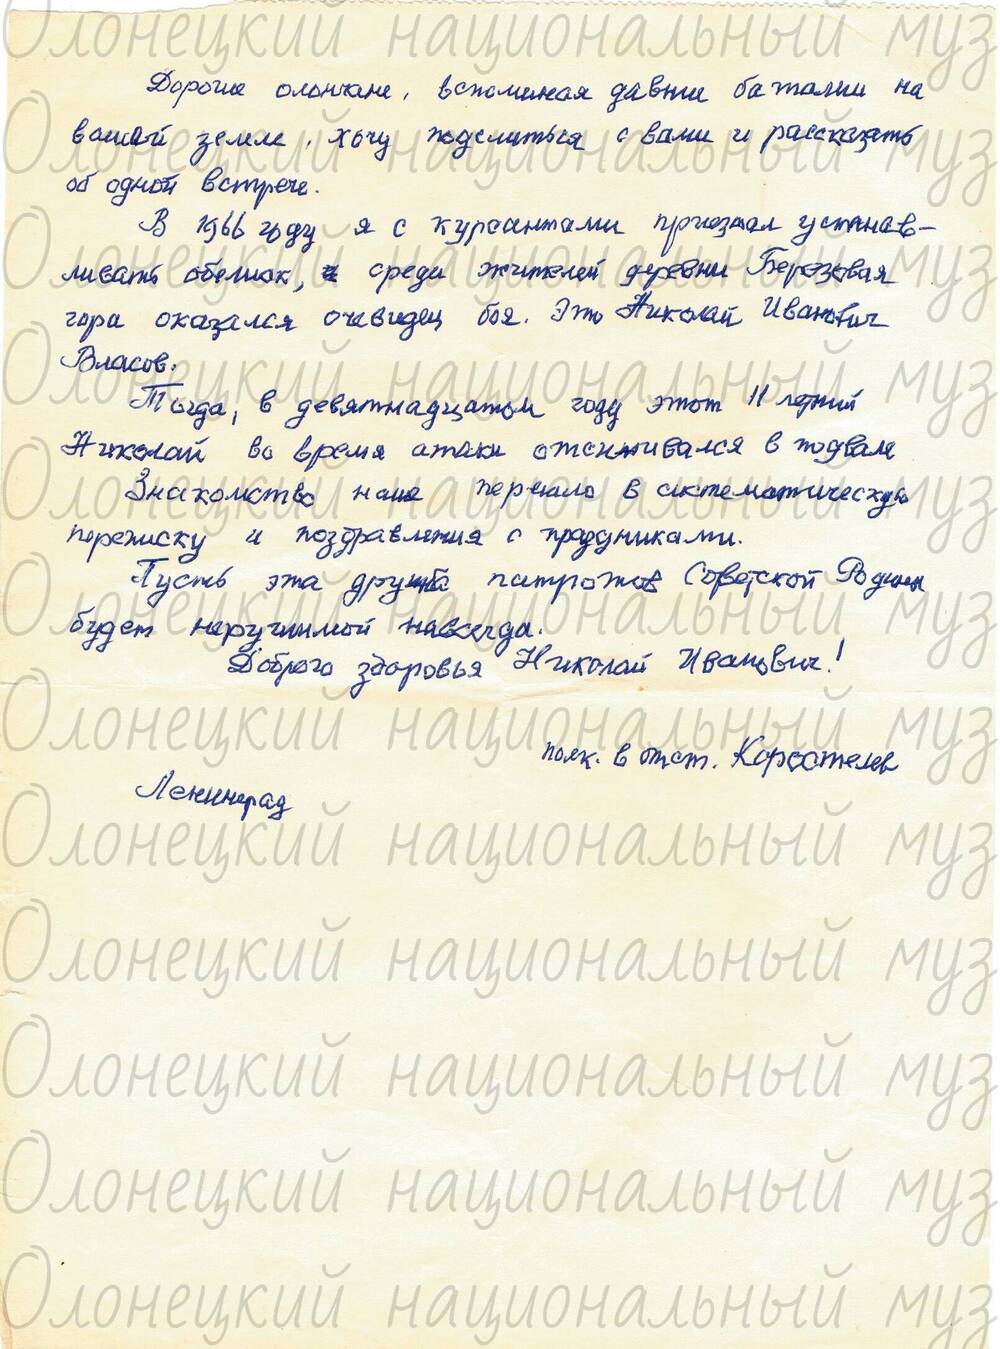 Дорогие олончане, вспоминая давние баталии на
вашей земле, хочу поделиться с вами и рассказать
об одной встрече.
В 1966 году я с курсантами приезжал устанав-
ливать обелиск, среди жителей деревни Березовая
гора оказался очевидец боя. Это Николай Иванович
Власов.
Тогда, в девятнадцатом году этот 11 летний
Николай во время атаки отсиживался в подвале
Знакомство наше перешло в систематическую
переписку и поздравления с праздниками.
Пусть эта дружба патриотов Советской Родины
будет нерушимой навсегда.
Доброго здоровья Николай Иванович!
полк. в отст. Коростелев
Ленинград
Олонецкий национальный муз
Олонецкий национальный муз
Олонецкий национальный муз
Олонецкий национальный муз
Олонецкий национальный муз
Олонецкий национальный муз
Олонецкий национальный муз
Олонецкий национальный муз
Олонецкий национальный муз
Олонецкий национальный муз
Олонецкий национальный муз
Олонецкий национальный муз